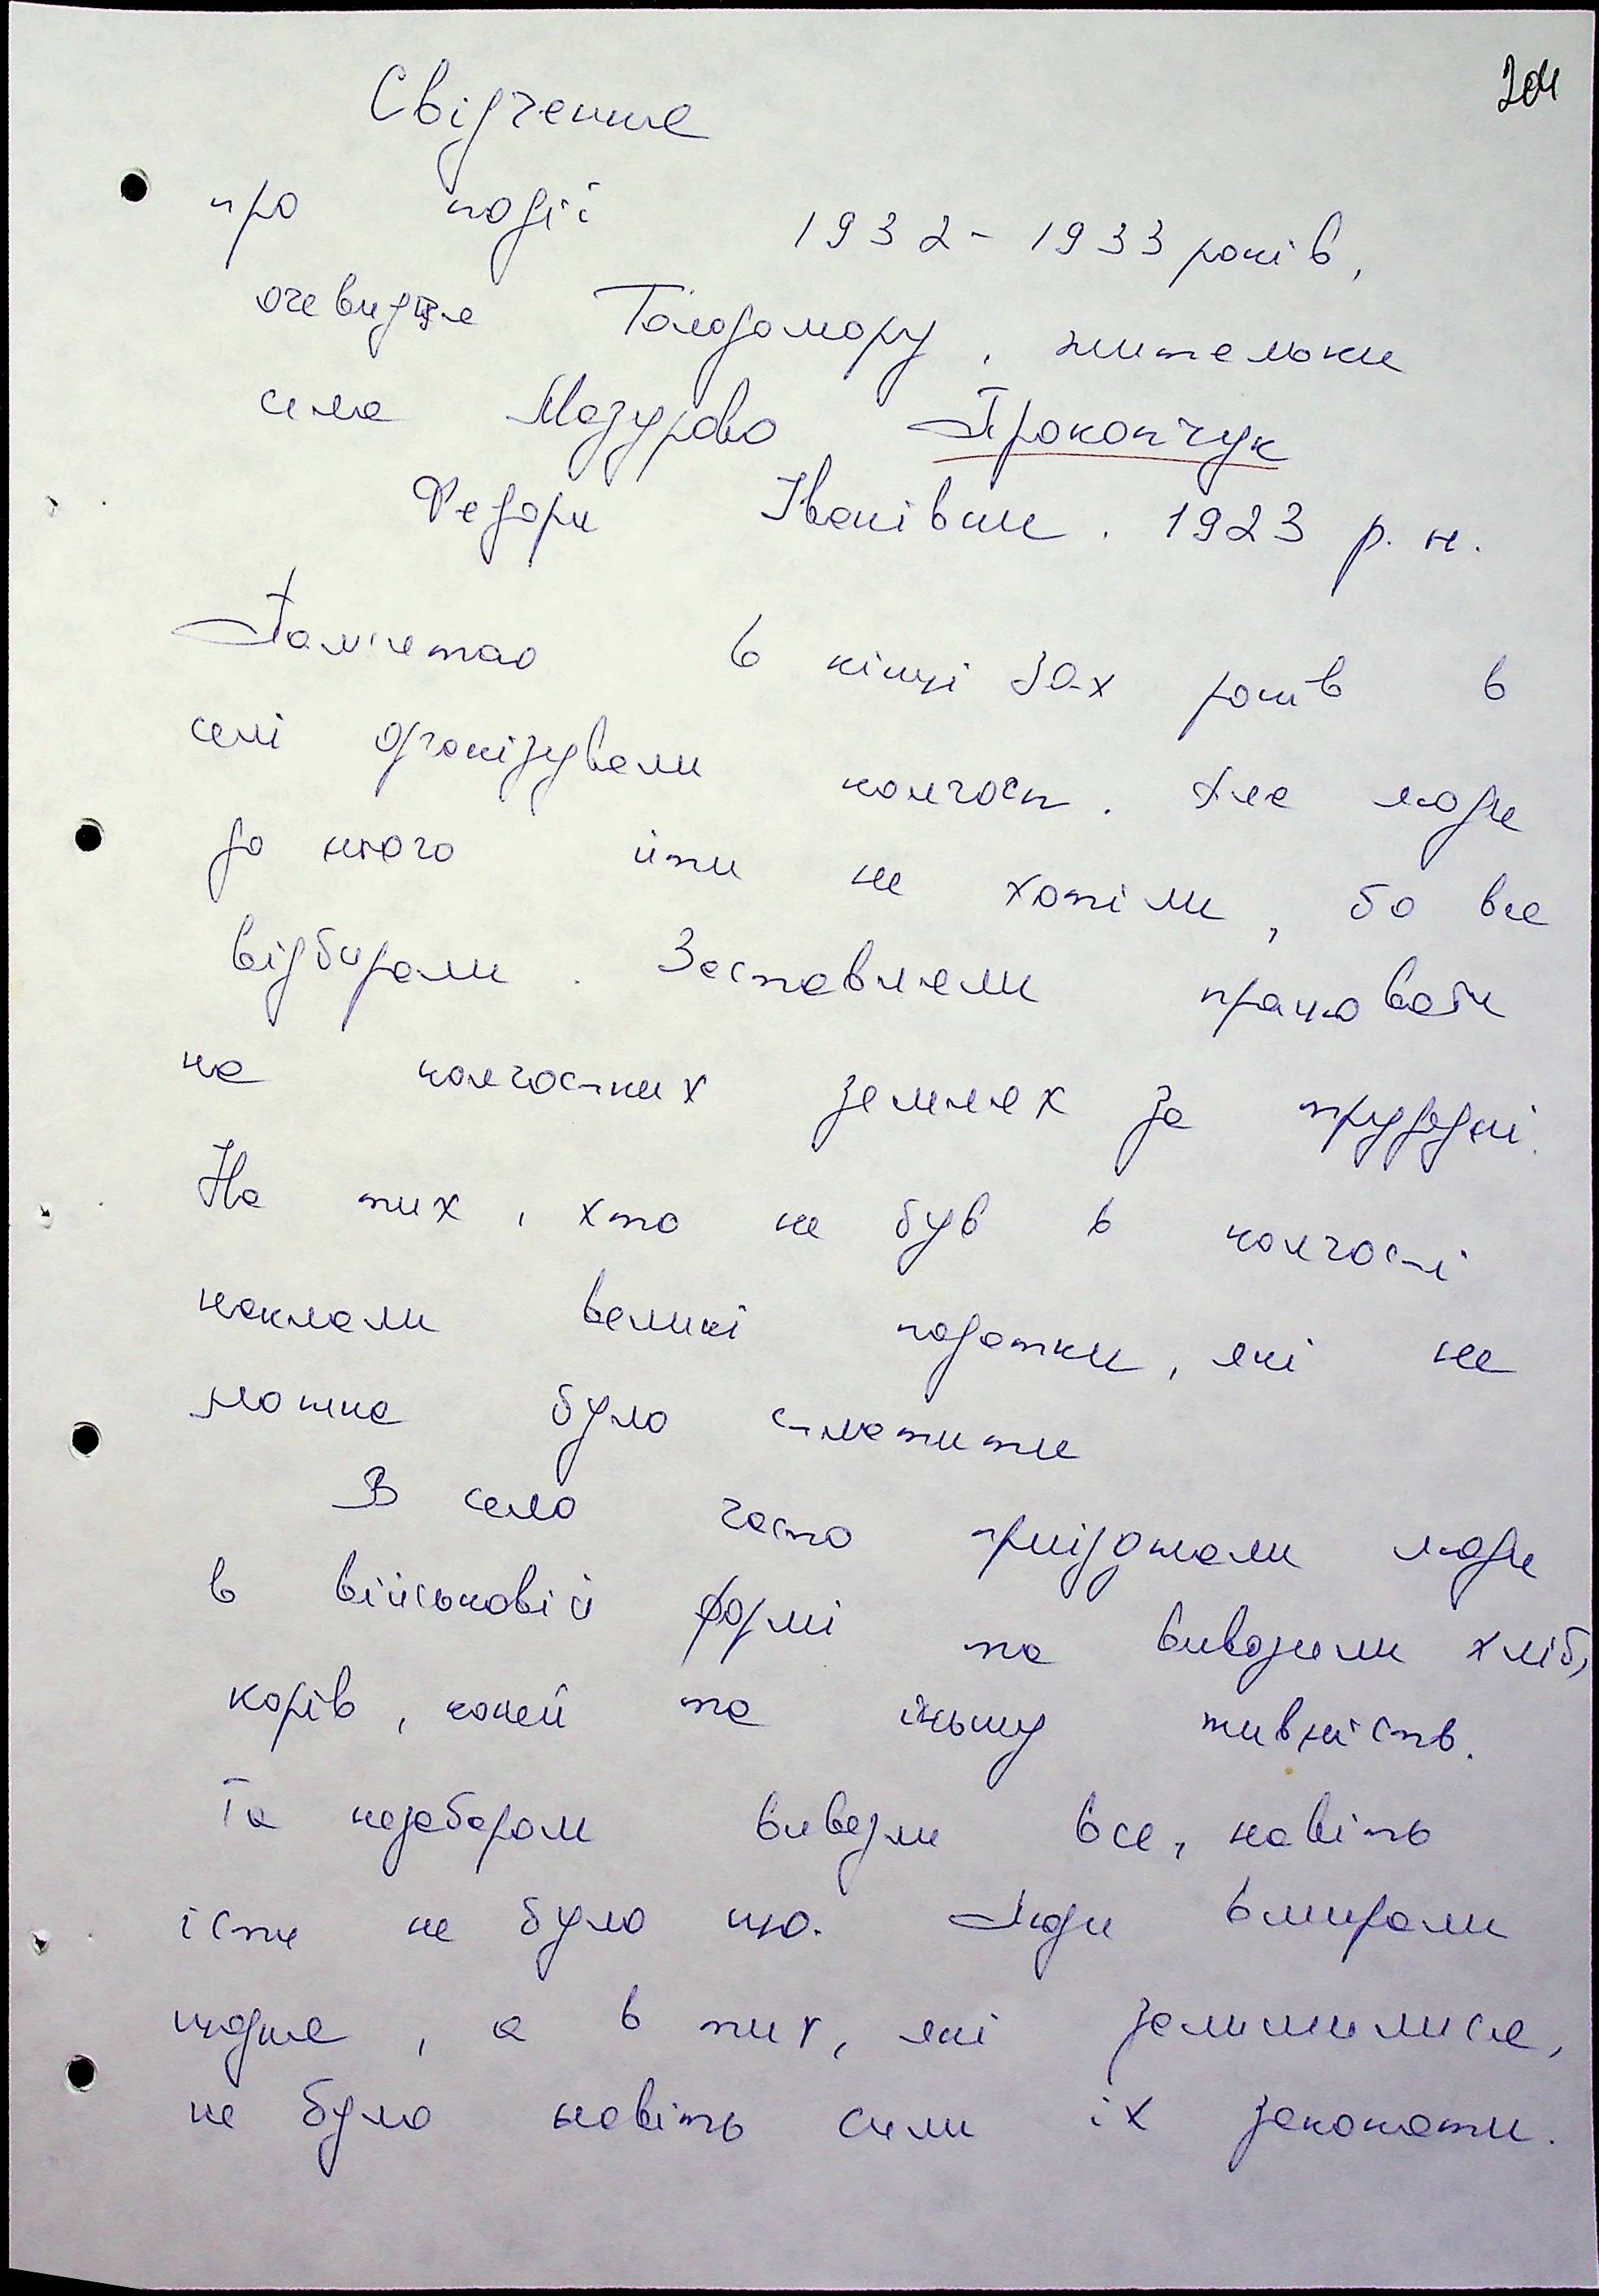 204
Свідчення
про події 1932-1933 років,
очевидця Голодомору, жительки
села Мазурово Прокопчук
Федори Іванівни. 1923 р. н.
Пам'ятаю в кінці 30-х років в
селі організували колгосп. Але люди
до нього йти не хотіли, бо все
відбирали. Заставляли працювати
на колгоспних землях за трудодні.
На тих, хто не був в колгоспі
наклали великі податки, які не
можна було сплатити
В село часто приїзжали люди
в військовій формі та вивозили хліб,
корів, коней та іншу живність.
Та незабаром вивезли все, навіть
їсти не було що. Люди вмирали
щодня, а в тих, які залишилися,
не було навіть сили їх закопати.